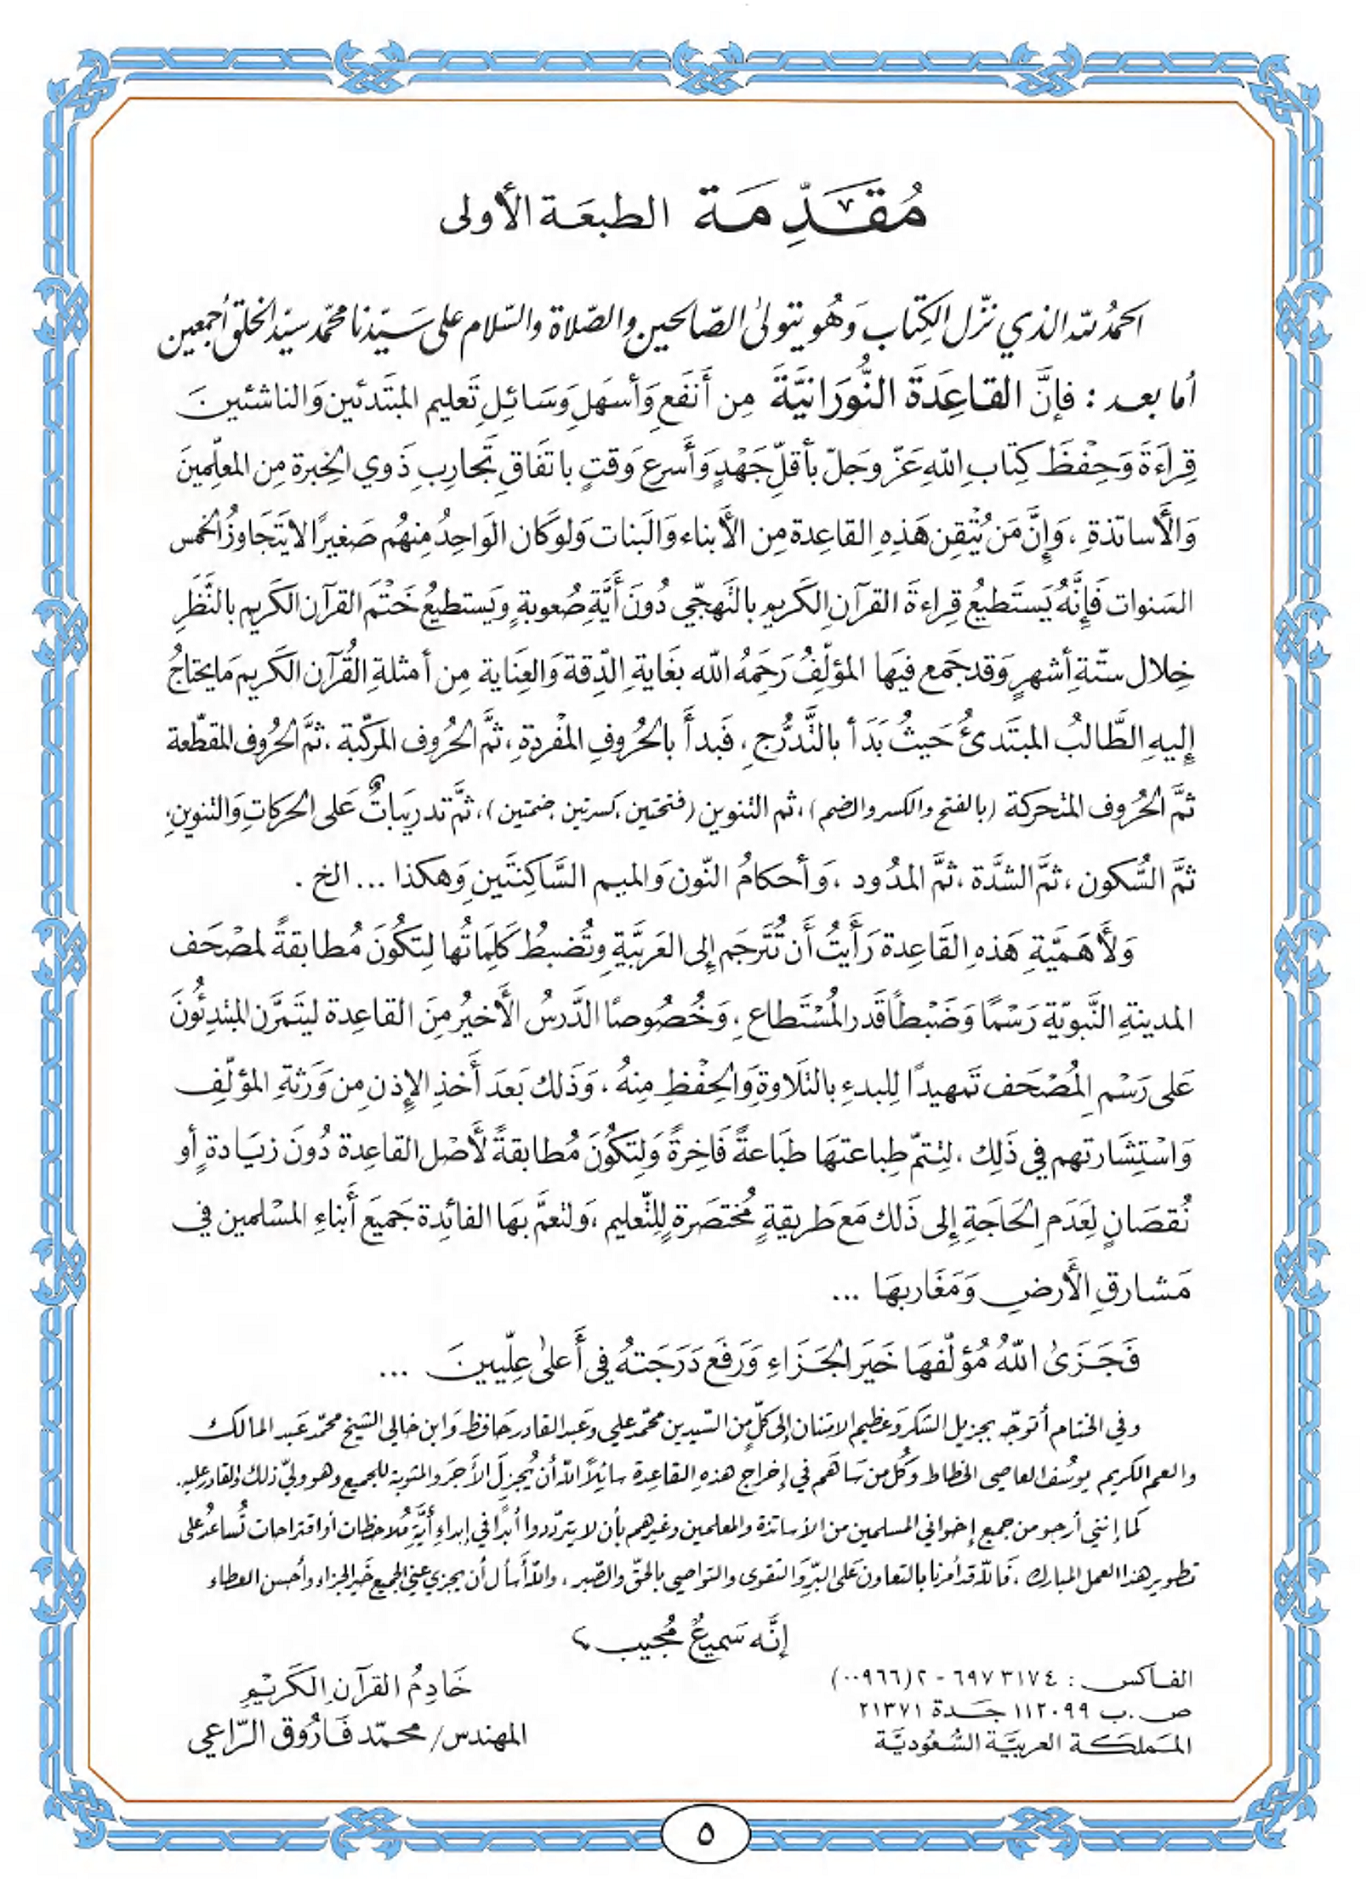 مُقَدِّمَة الطبعَة الأولى
الحمدُ للّه الذي نزّل الكِتاب وَهُو يتولىٰ الصّالحين والصّلاة والسّلام على سَيّدنا محمّد سيّد الخلق أجمعين
أما بعد : فإنَّ القاعِدَة النُّورَانيَّةَ مِن أَنفَعِ وَأسهَلِ وَسَائلِ تَعليم المبتَدئين وَالناشئينَ
قِراءَةَ وَحِفْظَ كِتابِ اللّهِ عَزّ وجَلّ بأقلِّ جَهْدٍ وَأسرع وَقتٍ باتفَاقِ تَجاربِ ذَوي الخِبرة مِن المعلّمينَ
وَالأساتذةِ ، وَإنَّ مَن يُتْقِن هَذهِ القاعِدة مِن الأبناء وَالبَنات وَلو كان الوَاحِدُ مِنهُم صَغيرًا لا يَتَجَاوزُ الخمس
السَنوات فَإنَّهُ يَستَطيعُ قِراءةَ القرآنِ الكَريم بالتَهجّي دُونَ أيَّة صُعوبةٍ ويَستطيعُ خَتْمَ القرآن الكَريم بالنَّظَرِ
خِلال ستّة أشهرٍ وَقد جَمع فيهَا المؤلّفُ رَحِمَهُ اللّه بغَاية الدِّقة وَالعِنَاية مِن أمثلةِ القُرآن الكَريم مَا يحتاجُ
إليهِ الطَّالبُ المبتَدئُ حَيثُ بَدَأ بالتَّدرُّج ، فَبدأَ بالحُروفِ المفْردةِ ، ثمَّ الحُروف المركّبة ، ثمَّ الحُروف المقطّعة
ثمَّ الحُروف المتحركة (بالفتح والكسر والضم) ، ثم التنوين (فتحتين ، كسرتين ، ضمتين) ، ثمَّ تدريبَاتٌ عَلى الحركاتِ وَالتنوين،
ثمَّ السُّكون ، ثمَّ الشدَّة ، ثمَّ المدُود ، وَأحكامُ النّون وَالميم السَّاكِنتَين وَهكذا ... الخ .
وَلأهَمَّيَّةِ هَذهِ القَاعِدة رَأَيتُ أن تُتَرجَم إلى العَربيَّةِ وتُضبطُ كَلِمَاتُها لِتَكُونَ مُطابقةً لمصْحَف
المدينةِ النَّبويّة رَسْمًا وَضَبْطًا قَدر المُسْتَطاع ، وَخُصُوصًا الدَّرسُ الأَخيرُ منَ القاعِدة ليتَمَرَّن المبْتدِئُونَ
عَلى رَسْمِ المُصْحَف تَمهيدًا لِلبدءِ بالتّلاوةِ وَالحِفْظِ مِنهُ ، وَذَلك بَعدَ أَخذِ الإذن مِن وَرَثةِ المؤلّف
وَاسْتِشَارتهم في ذَلِك ، لِتتمّ طِباعتهَا طَبَاعةً فَاخِرةً وَلتَكُونَ مُطابقةً لأَصْل القاعِدة دُونَ زيَادة أو
نُقصَانٍ لِعَدَم الحَاجَةِ إلى ذَلك مَع طَريقةٍ مُختصَرةٍ للتّعليم ، وَلتعمَّ بهَا الفائدة جَميعَ أَبناءِ المسْلمين في
مَشارقِ الأَرضِ وَمَغَاربهَا ...
فَجَزَى اللّهُ مُؤلّفهَا خَيرَ الجَزَاءِ وَرَفَع دَرَجَتهُ في أَعلىٰ عِلِّيينَ ...
وفي الختام أتوجّه بجزيل الشكر وَعظيم الامتنان إلى كلٍّ من السّيدين محمّد علي وعَبد القادر حَافظ وَابن خالي الشيخ محمّد عَبد المالك
والعم الكريم يوسُف العاصي الخطاط وكُل من سَاهَم في إخراج هذهِ القاعدة سائلاً اللّه أن يُجزلَ الأجرَ والمثوبة للجميع وهو وليّ ذلك والقادر عليه.
كما إنني أرجو من جميع إخواني المسلمين من الأساتذة والمعلمين وغيرهم بأن لا يتردّدوا أبدًا في إبداءِ أيَّةِ مُلاحظات أو اقتراحات تُساعدُ على
تطوير هذا العمل المبارك ، فاللّه قد أمرنا بالتعاون عَلى البِرِّ وَالتقوى والتواصي بالحقّ والصّبر ، واللّه أَسأل أن يجزي عنّي الجميعَ خَير الجزاء وأحسن العطاء
إنَّه سَميعٌ مُجيب
الفاكس : ٦٩٧٣١٧٤ - ٢ (٠٠٩٦٦)
ص.ب ١١٢٠٩٩ جَدة ٢١٣٧١
المملكَة العربيَّة السُّعُوديَّة
خَادِمُ القرآن الكَريْم
المهندس/ محمّد فَارُوق الرّاعي
٥